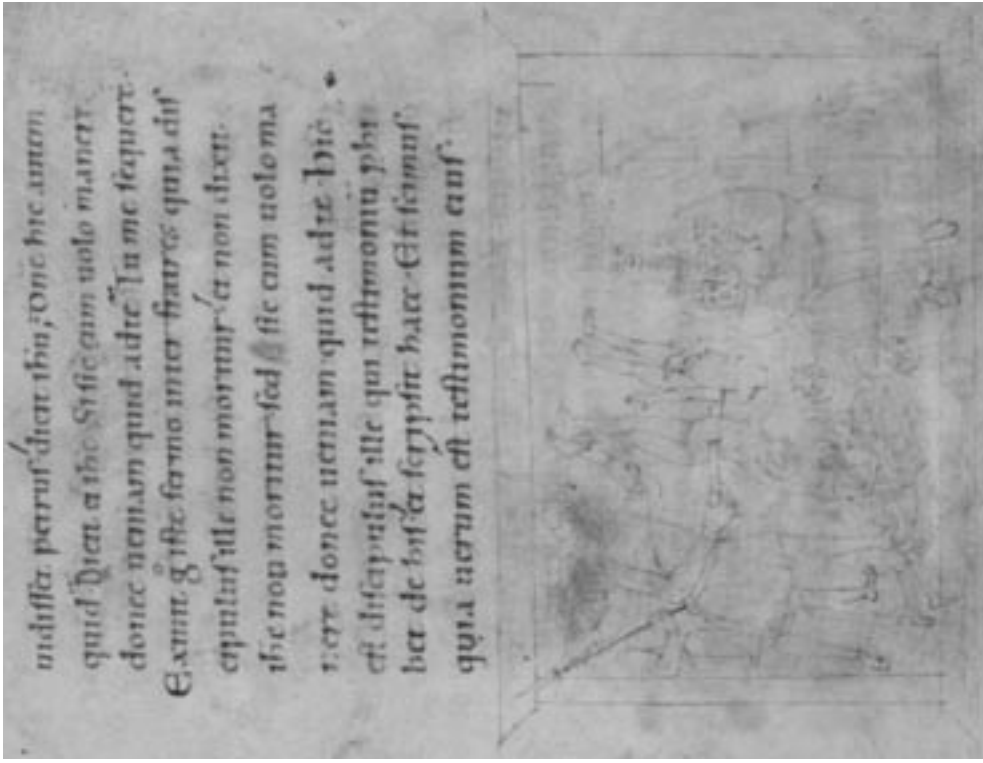 uidisset petrus dicit ihu; Dne hic autem
quid Dicit ei ihc Si sic eum uolo manere
donec ueniam quid ad te Tu me sequere.
Exiuit g iste sermo inter fratres quia dis
cipulus ille non moritur et non dixit.
ihc non moritur sed sic eum uolo ma
nere donec ueniam quid ad te hic
est discipulus ille qui testimoniu phi
bet de his et scripsit haec Et scimus
quia uerum est testimonium eius.